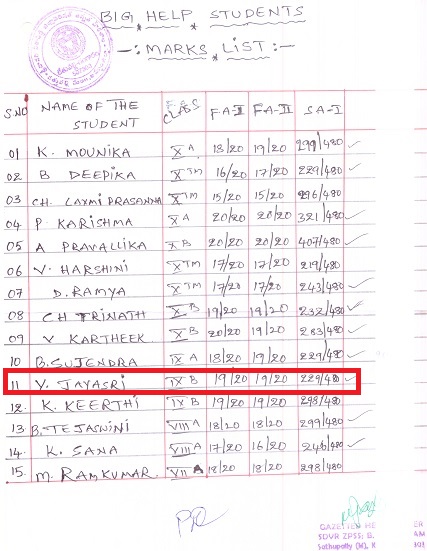 BIG HELP STUDENTS
-: MARKS LIST :-
S.NO NAME OF THE STUDENT CLASS FA-I FA-II SA-I
01 K. MOUNIKA X A 18/20 19/20 299/480
02 B DEEPIKA X TM 16/20 17/20 229/480
03 CH. LAXMI PRASANNA X TM 15/20 15/20 296/480
04 P KARISHMA X A 20/20 20/20 321/480
05 A PRAVALLIKA X B 20/20 20/20 407/480
06 V. HARSHINI X TM 17/20 17/20 219/480
07 D. RAMYA X TM 17/20 17/20 243/480
08 CH TRINATH X B 19/20 19/20 232/480
09 V KARTHEEK X B 20/20 19/20 283/480
10 B. SUJENDRA IX A 18/20 19/20 229/480
11 V. JAYASRI IX B 19/20 19/20 229/480
12. K. KEERTHI IX B 19/20 19/20 298/480
13 B. TEJASWINI VIII A 18/20 18/20 299/480
14 K. SANA VIII A 17/20 16/20 246/480
15. M. RAMKUMAR VII A 18/20 18/20 298/480
GAZETTED
SDVR ZPSS: B.
Sathupally (M),